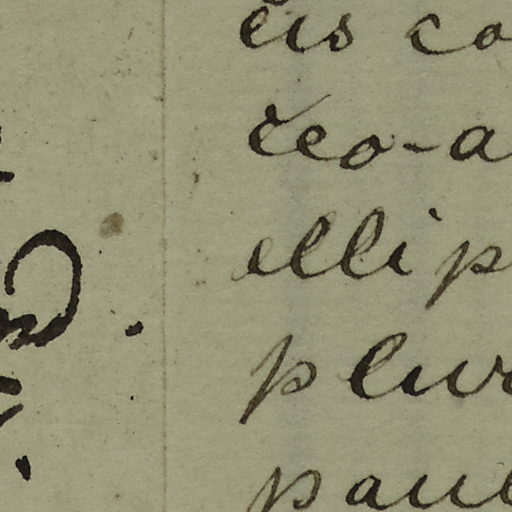 eis co
reo-a
ellip
plur
paul